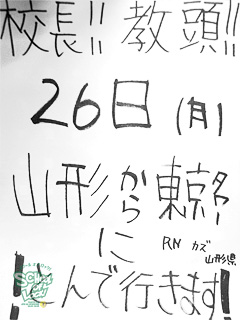 校長!! 教頭!!
26日(月)
山形から東京タワーに
RN カズ
山形県
とんで行きます!!